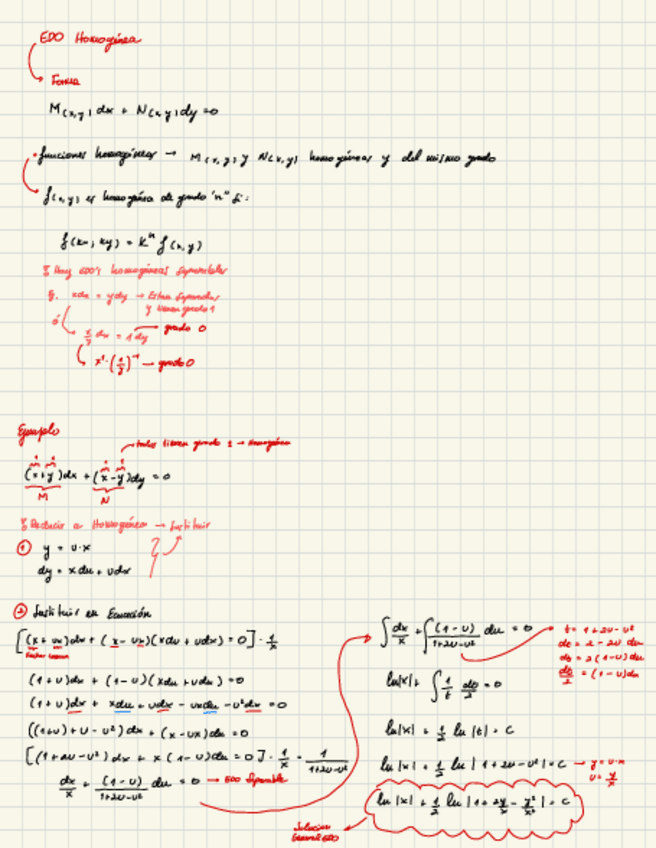 EDO Homogénea
Forma
M(x,y) dx + N(x,y) dy = 0
• funciones homogéneas → M(x,y) y N(x,y) homogéneas y del mismo grado
f(x,y) es homogénea de grado "n" si:
f(kx, ky) = kⁿ f(x,y)
Hay EDO's homogéneas separables
xdx = ydy → Estan Separadas
y tienen grado 1
ó
x/y dx = 1dy → grado 0
x¹·(1/y)⁻¹ → grado 0
Ejemplo
todos tienen grado 1 → Homogénea
1 1 1 1
(x+y)dx + (x-y)dy = 0
M N
Reducir a Homogénea → Sustituir
① y = u·x
dy = xdu + udx
② Sustituir en Ecuación
[(x + ux)dx + (x - ux)(xdu + udx) = 0]·1/x
Factor común
(1+u)dx + (1-u)(xdu + udx) = 0
(1+u)dx + xdu + udx - uxdu - u²dx = 0
((1+u) + u - u²)dx + (x - ux)du = 0
[(1+2u-u²)dx + x(1-u)du = 0]·1/x · 1/(1+2u-u²)
dx/x + (1-u)/(1+2u-u²) du = 0 → EDO Separable
∫dx/x + ∫(1-u)/(1+2u-u²) du = 0
t = 1+2u-u²
dt = 2-2u du
dt = 2(1-u)du
dt/2 = (1-u)du
ln|x| + ∫1/t dt/2 = 0
ln|x| + 1/2 ln|t| = c
ln|x| + 1/2 ln|1+2u-u²| = c → y = u·x
u = y/x
ln|x| + 1/2 ln|1+2y/x - y²/x²| = c
Solucion
General EDO